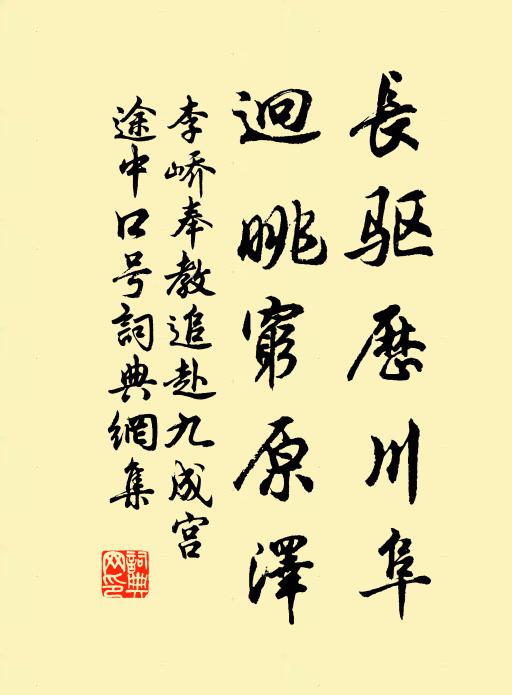 長驱歷川阜
迴眺窮原澤
李峤奉教追赴九成宫
途中口号詞典網集
詞典網印